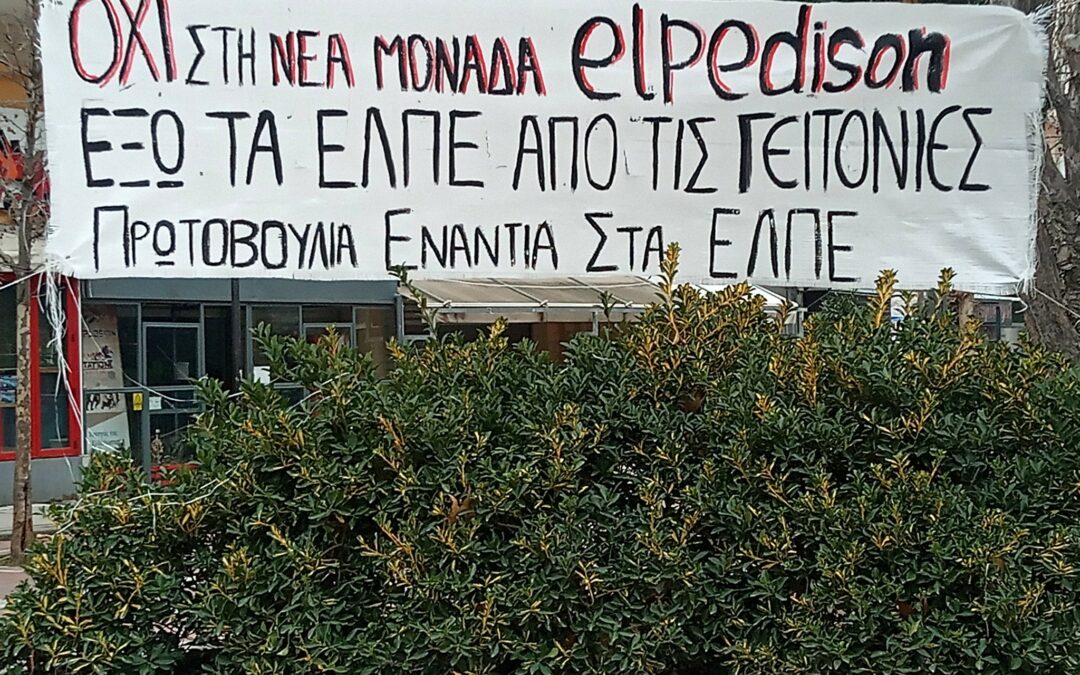 ΌΧΙ ΣΤΗ ΝΕΑ ΜΟΝΑΔΑ elpedison
ΕΞΩ ΤΑ ΕΛΠΕ ΑΠΟ ΤΙΣ ΓΕΙΤΟΝΙΕΣ
ΠΡΩΤΟΒΟΥΛΙΑ ΕΝΑΝΤΙΑ ΣΤΑ ΕΛΠΕ